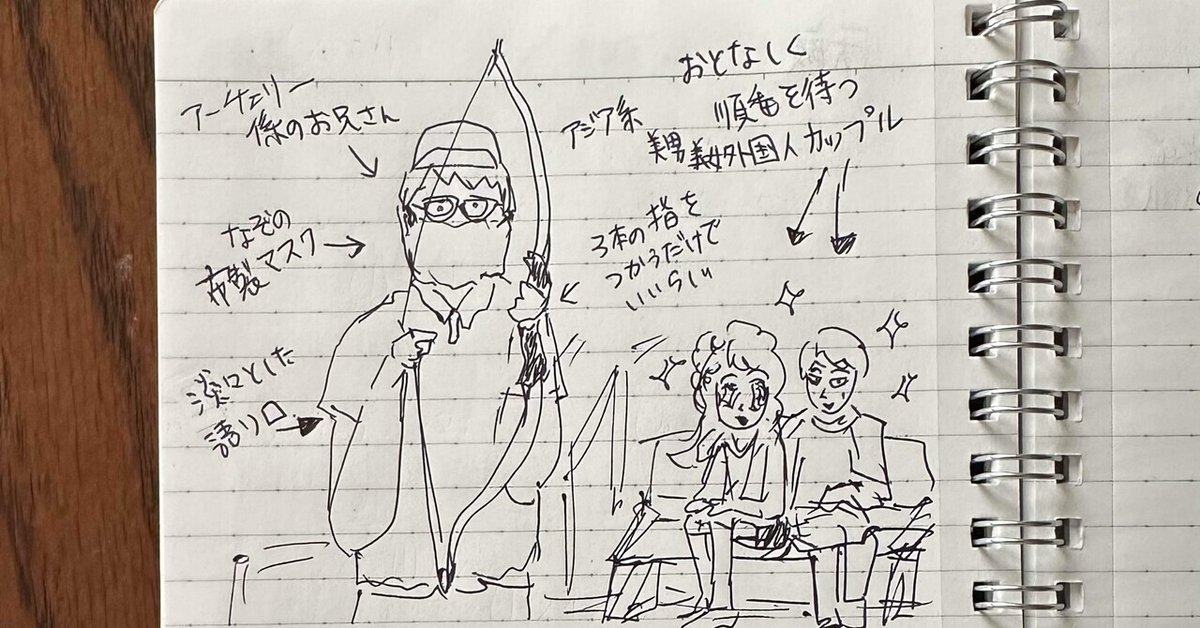 アーチェリー
係のお兄さん
なぞの
布製マスク
淡々とした
語り口
アジア系
3本の指を
つかうだけで
いいらしい
おとなしく
順番を待つ
美男美女外国人カップル